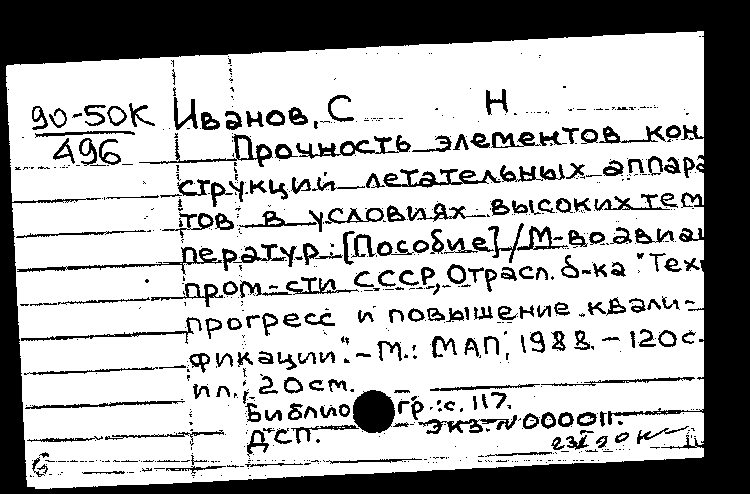 90-50К Иванов, С Н.
496 Прочность элементов кон
струкций летательных аппара
тов в условиях высоких тем
ператур: [Пособие] / М-во авиац
пром-сти СССР, Отрасл. б-ка "Техн
прогресс и повышение квали-
фикации". - М.: МАП, 1988. - 120 с.
ил.; 20 см.
Библиогр.: с. 117.
ДСП. Экз. N 000011.
б